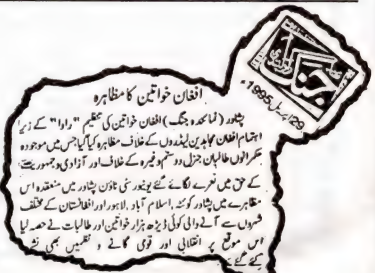 جنگ
29 اپریل 1995ء
افغان خواتین کا مظاہرہ
پشاور (نمائندہ جنگ) افغان خواتین کی تنظیم "راوا" کے زیر
اہتمام افغان مجاہدین لیڈروں کے خلاف مظاہرہ کیا گیا جس میں موجودہ
حکمرانوں طالبان جنرل دوستم وغیرہ کے خلاف اور آزادی و جمہوریت
کے حق میں نعرے لگائے گئے یونیورسٹی ٹاؤن پشاور میں منعقدہ اس
مظاہرے میں پشاور کوئٹہ، اسلام آباد، لاہور اور افغانستان کے مختلف
شہروں سے آنے والی کوئی ڈیڑھ ہزار خواتین اور طالبات نے حصہ لیا
اس موقع پر انقلابی اور قومی گانے و نظمیں بھی نشر
کیے گئے